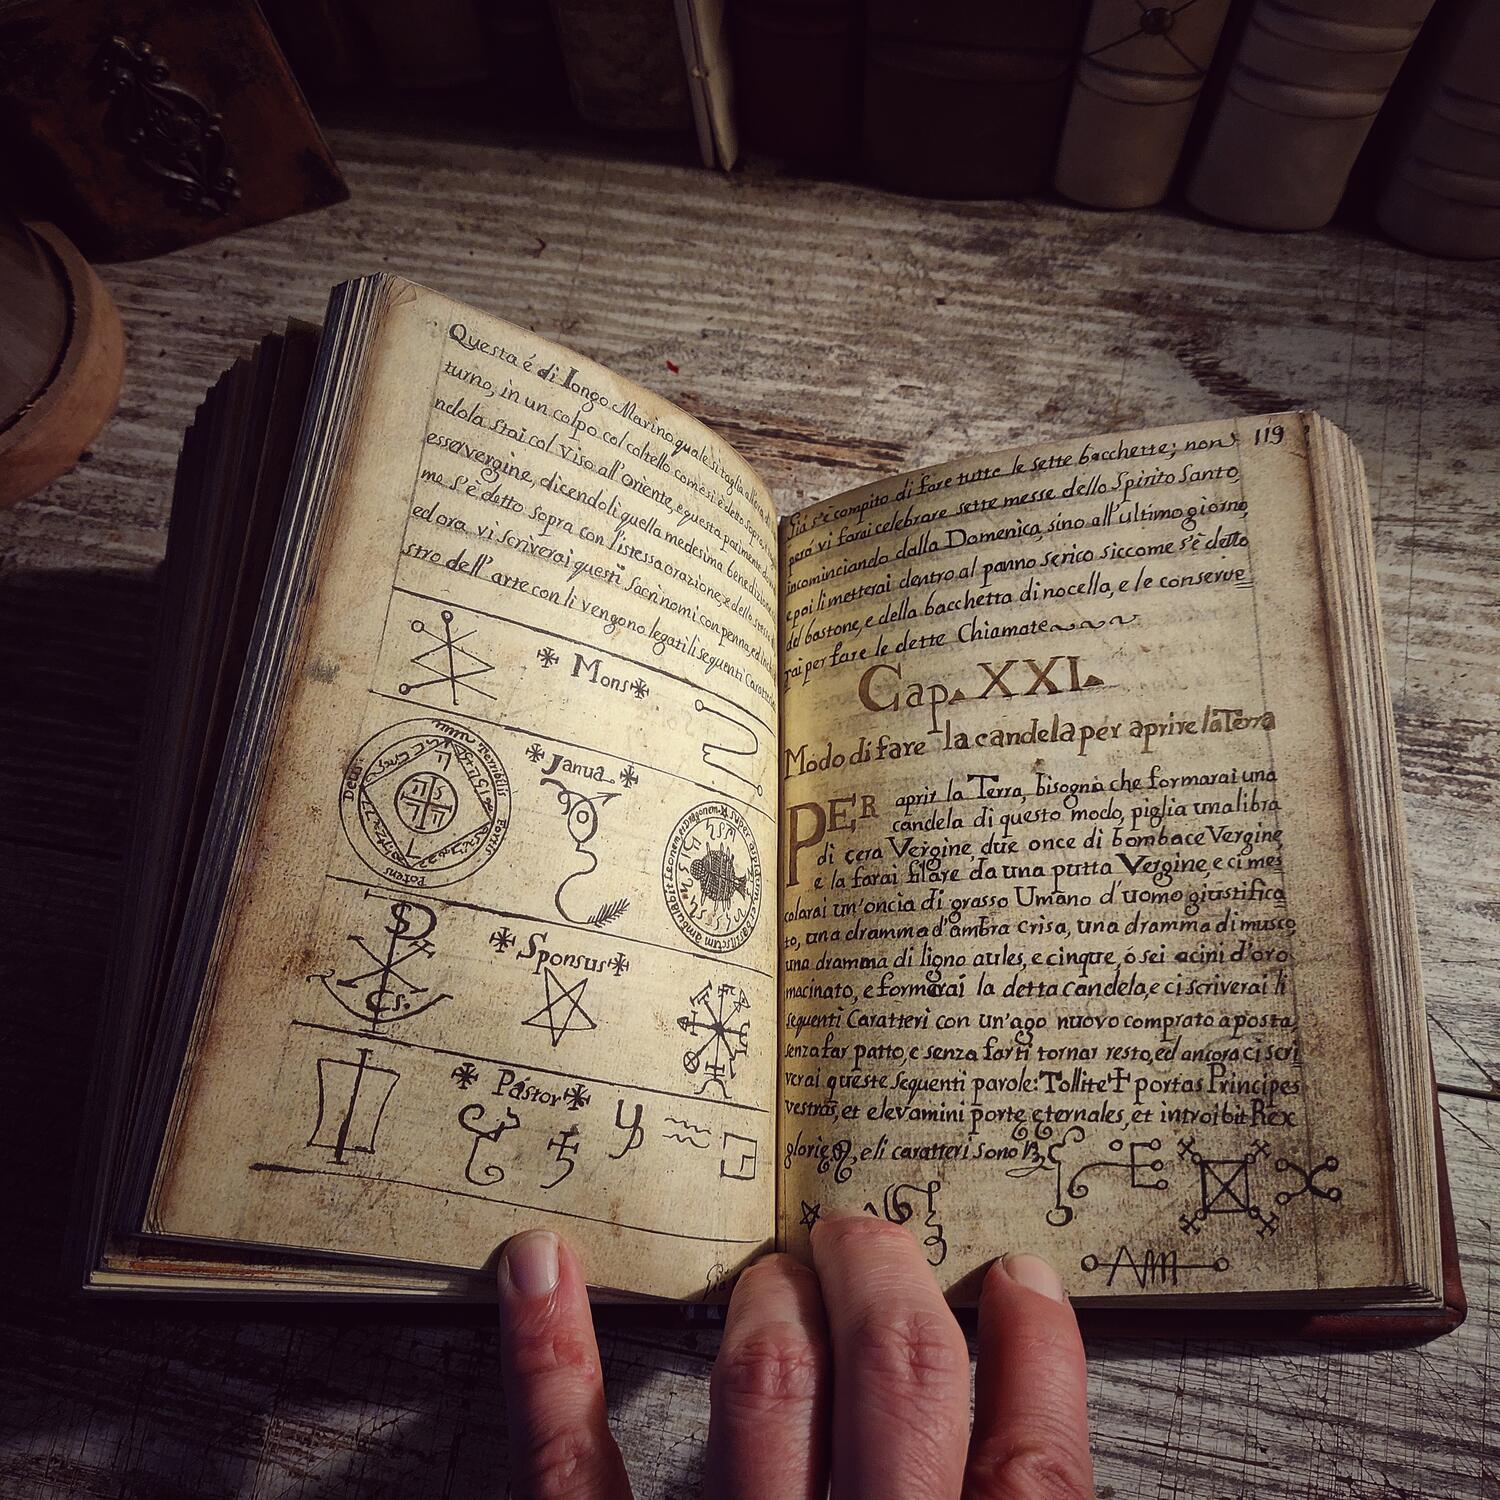 Questa é di Iongo Marino, quale si taglia all'ora di
turno, in un colpo col coltello come si è detto sopra, e
ndola stai col viso all'oriente, e questa parimente
esser vergine, dicendoli quella medesima benedizione
me s'è detto sopra con l'istessa orazione, e dello stesso
ed ora vi scriverai questi Sacri nomi con penna, ed
stro dell'arte con li vengono legati li sequenti Caratteri
Mons
Janua
Terribilis Fortis Potens Deus
super aspidem et basiliscum ambulabit Leonem
Sponsus
Pastor
119
Già s'è compito di fare tutte le sette bacchette; non
però vi farai celebrare sette messe dello Spirito Santo,
incominciando dalla Domenica, sino all'ultimo giorno,
e poi li metterai dentro al panno serico siccome s'è detto
del bastone, e della bacchetta di nocella, e le conserve
rai per fare le dette Chiamate
Cap. XXI.
Modo di fare la candela per aprire la Terra
PER aprir la Terra, bisogna che formarai una
candela di questo modo, piglia una libra
di cera Vergine, due once di bombace Vergine,
e la farai filare da una putta Vergine, e ci mes
colarai un'oncia di grasso Umano d'uomo giustifica
to, una dramma d'ambra crisa, una dramma di musco,
una dramma di ligno aules, e cinque, ó sei acini d'oro
macinato, e formarai la detta candela, e ci scriverai li
sequenti Caratteri con un'ago nuovo comprato a posta,
senza far patto, e senza farti tornar resto, ed ancora ci scri
verai queste sequenti parole: Tollite portas Principes
vestras, et elevamini porte eternales, et introibit Rex
glorie, e li caratteri sono